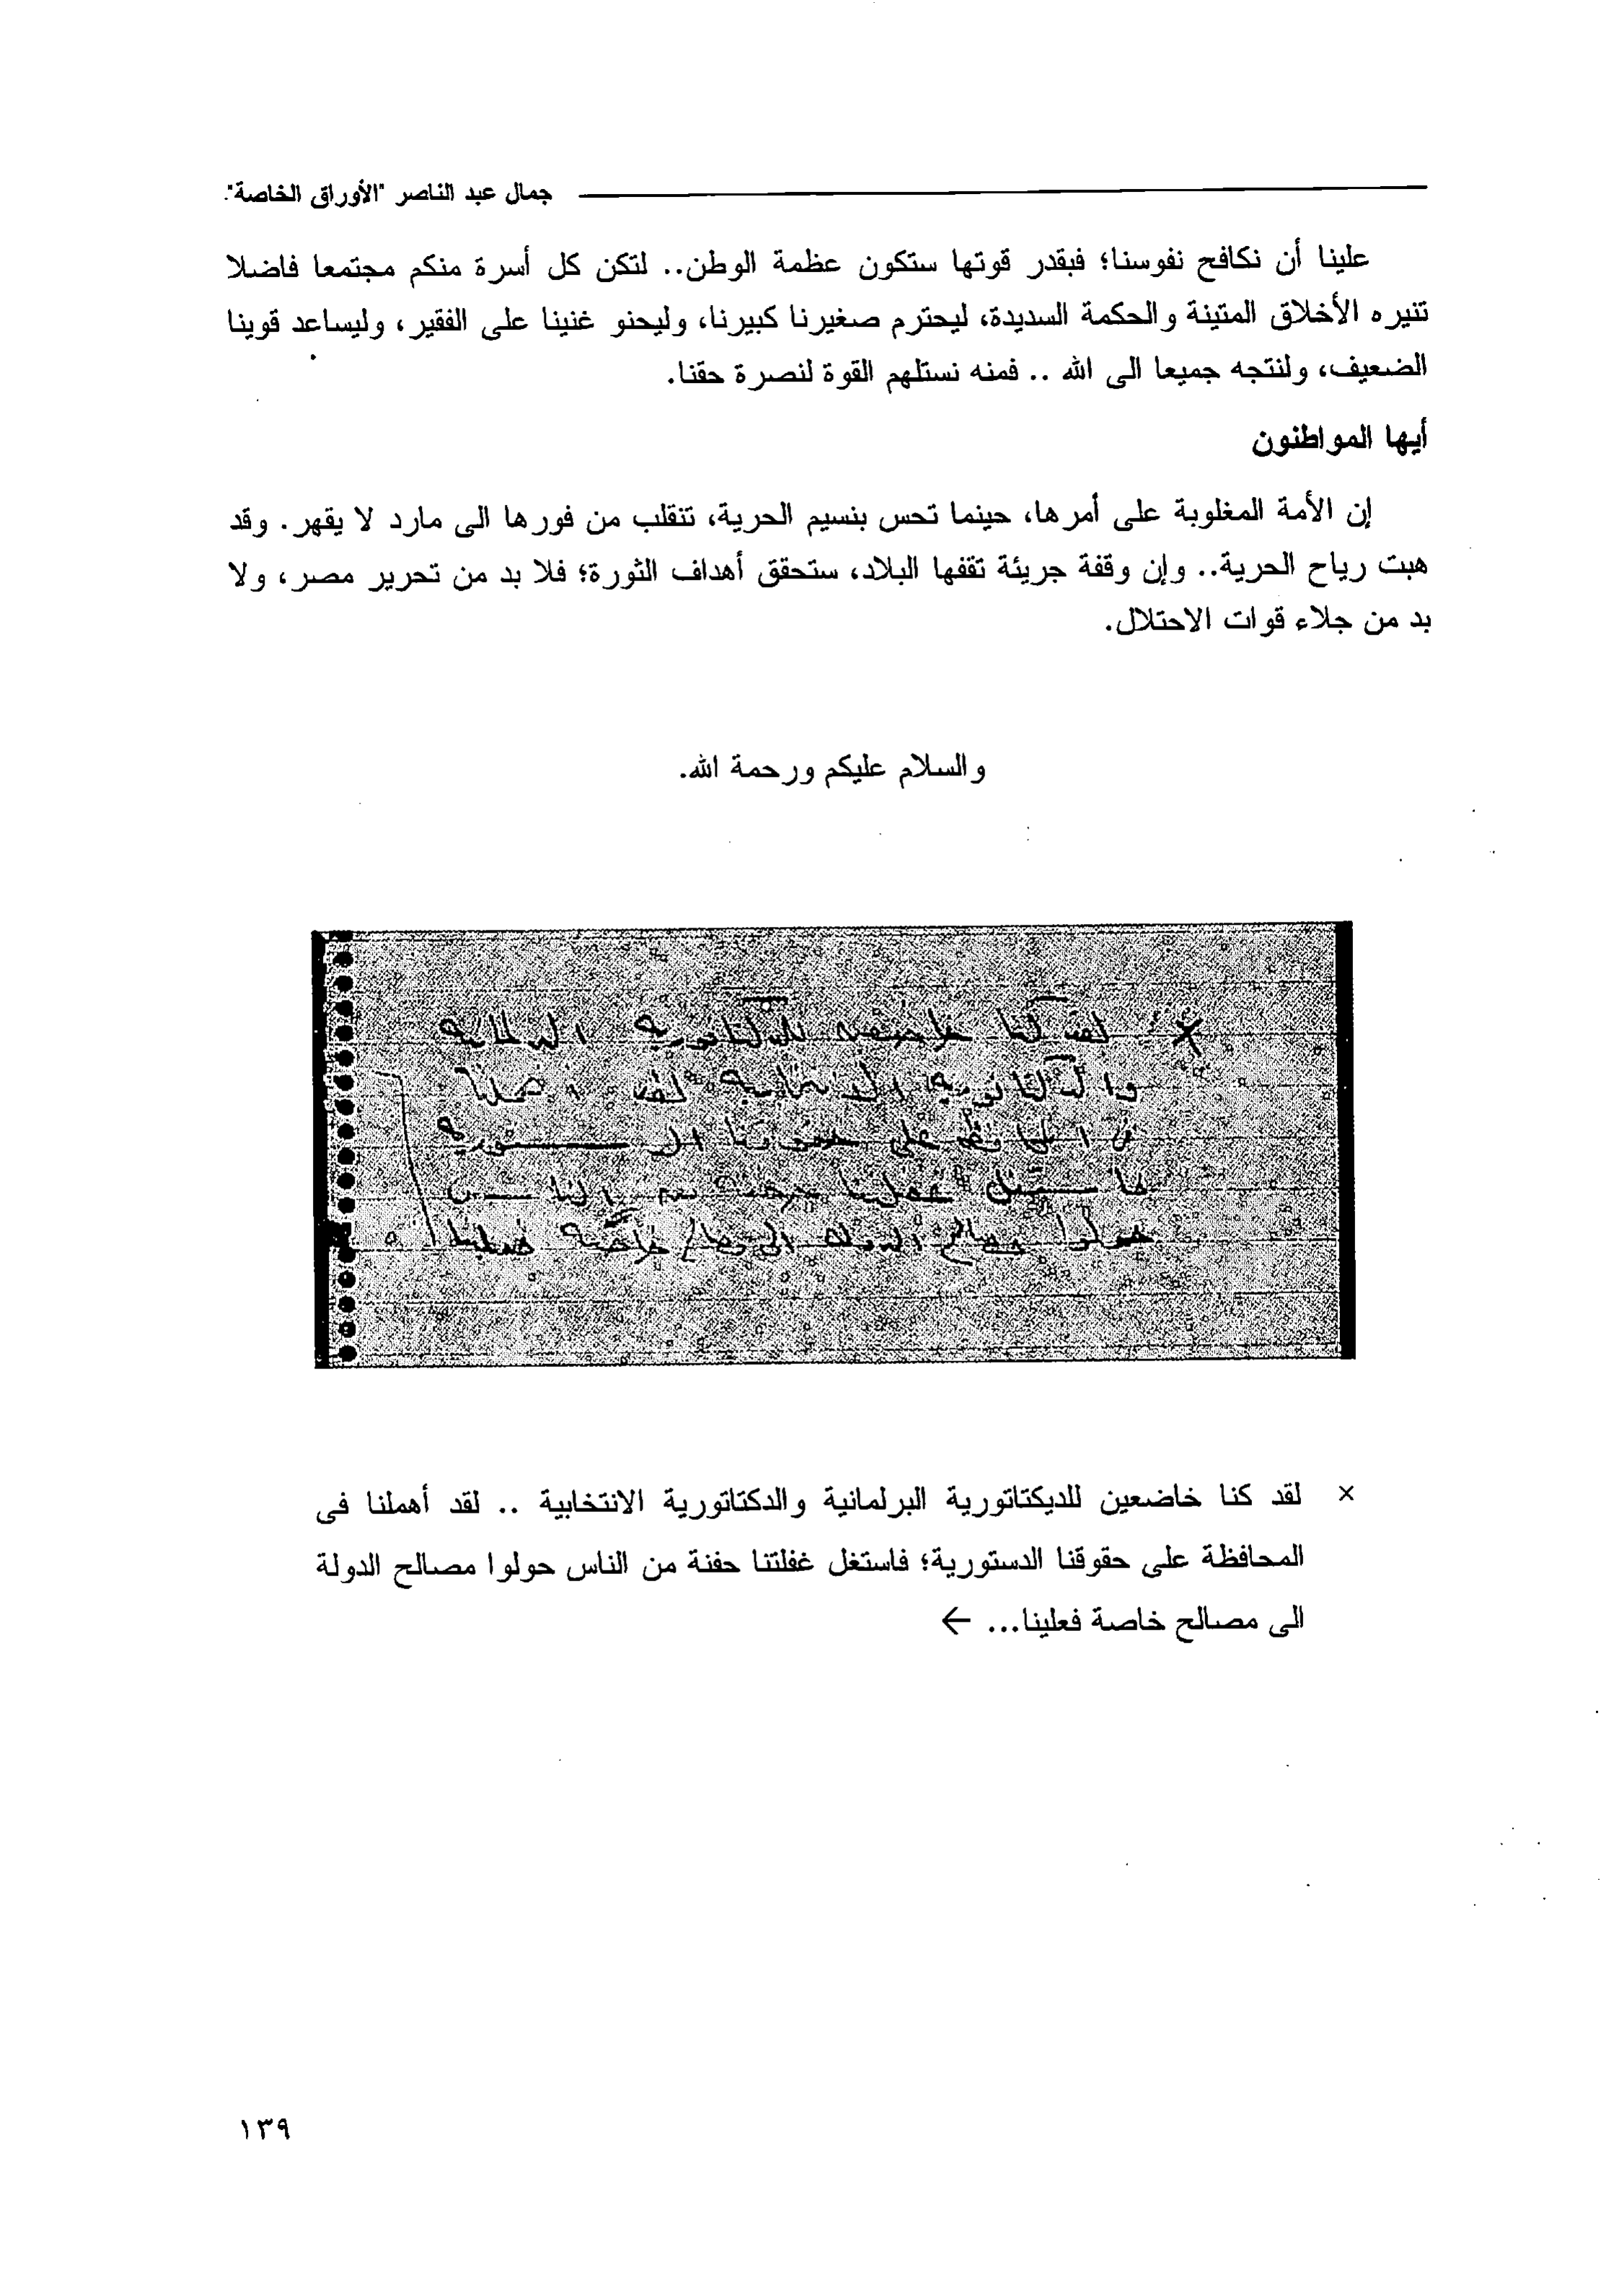 جمال عبد الناصر "الأوراق الخاصة".
علينا أن نكافح نفوسنا؛ فبقدر قوتها ستكون عظمة الوطن.. لتكن كل أسرة منكم مجتمعا فاضلا
تنيره الأخلاق المتينة والحكمة السديدة، ليحترم صغيرنا كبيرنا، وليحنو غنينا على الفقير، وليساعد قوينا
الضعيف، ولنتجه جميعا الى الله .. فمنه نستلهم القوة لنصرة حقنا.
أيها المواطنون
إن الأمة المغلوبة على أمرها، حينما تحس بنسيم الحرية، تنقلب من فورها الى مارد لا يقهر. وقد
هبت رياح الحرية.. وإن وقفة جريئة تقفها البلاد، ستحقق أهداف الثورة؛ فلا بد من تحرير مصر، ولا
بد من جلاء قوات الاحتلال.
والسلام عليكم ورحمة الله.
× لقد كنا خاضعين للدكتاتورية البرلمانية
والدكتاتورية الانتخابية لقد أهملنا
فى المحافظة على حقوقنا الدستورية
فاستغل غفلتنا حفنة من الناس
حولوا مصالح الدولة الى مصالح خاصة فعلينا
× لقد كنا خاضعين للديكتاتورية البرلمانية والدكتاتورية الانتخابية .. لقد أهملنا فى
المحافظة على حقوقنا الدستورية؛ فاستغل غفلتنا حفنة من الناس حولوا مصالح الدولة
الى مصالح خاصة فعلينا... ←
١٣٩